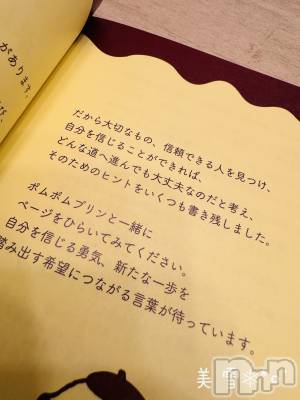 があります。
だから大切なもの、信頼できる人を見つけ、
自分を信じることができれば、
どんな道へ進んでも大丈夫なのだと考え、
そのためのヒントをいくつも書き残しました。
ポムポムプリンと一緒に
ページをひらいてみてください。
自分を信じる勇気、新たな一歩を
踏み出す希望につながる言葉が待っています。
美雪